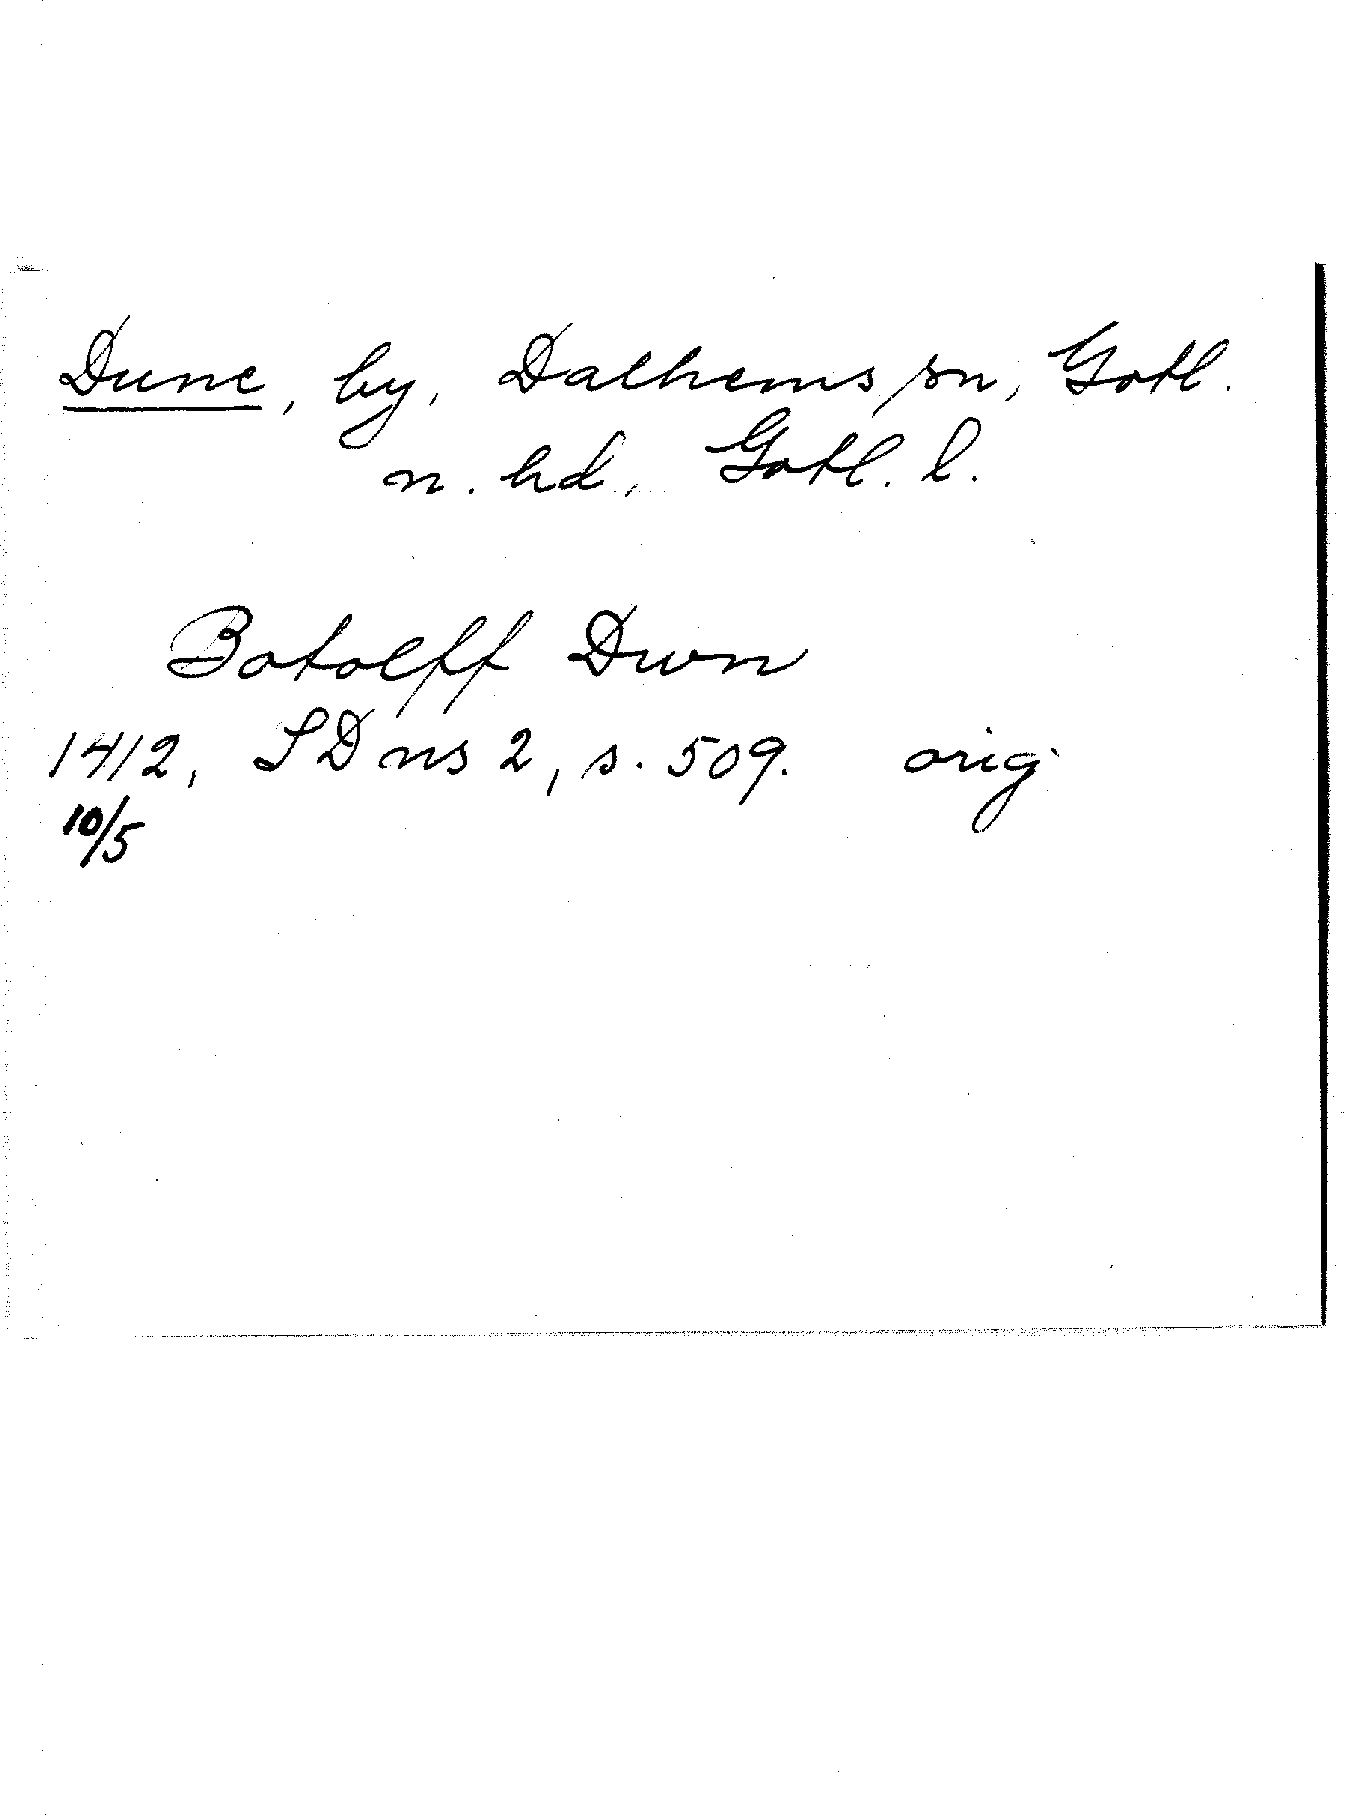 Dune, by, Dalhems sn, Gotl.
n. hd, Gotl. l.
Botolff Dwn
1412, SD ns 2, s. 509. orig.
10/5